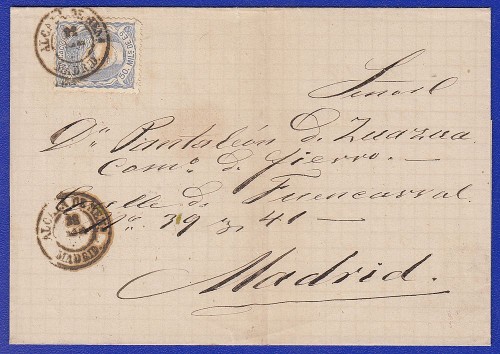 ALCALÁ DE HEN.
MADRID.
50 MILS DE E.
Señor
Dn Pantaleón de Zuazua
Como. de fierro.
Calle de Fuencarral
No. 39 y 41
Madrid.
ALCALÁ DE HEN.
MADRID.